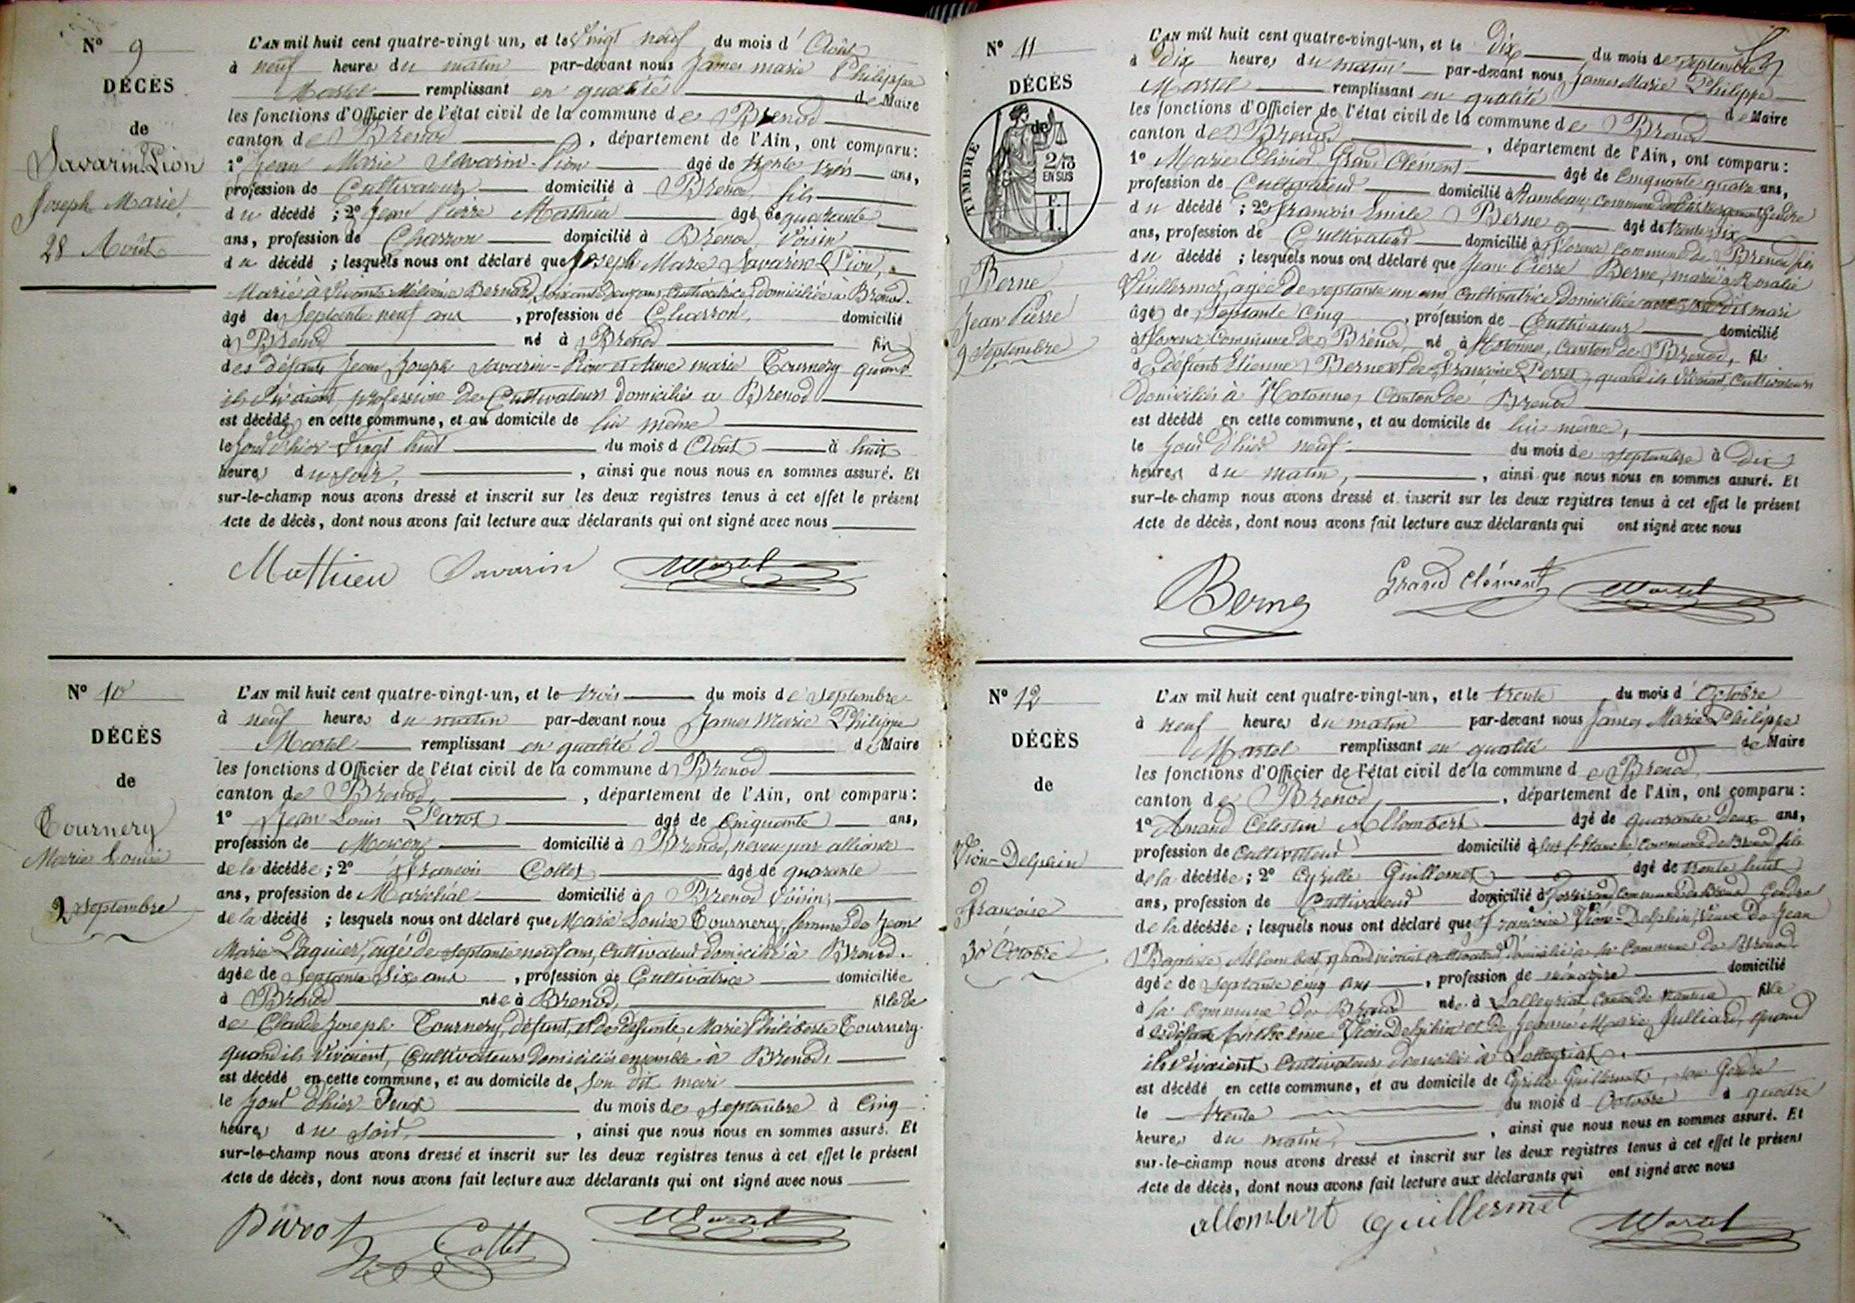 N° 9
DÉCÈS
de
Savarin-Lion
Joseph Marie,
28 Août
L'AN mil huit cent quatre-vingt un, et le Vingt neuf du mois d'Août
à neuf heures du matin par-devant nous James marie Philippe
Martel remplissant en qualité de Maire
les fonctions d'Officier de l'état civil de la commune de Brenod
canton de Brenod, département de l'Ain, ont comparu:
1° Jean Marie Savarin-Lion âgé de trente trois ans,
profession de Cultivateur domicilié à Brenod, fils
du décédé; 2° Jean Pierre Mathieu âgé de quarante
ans, profession de Charron domicilié à Brenod, Voisin
du décédé; lesquels nous ont déclaré que Joseph Marie Savarin Lion,
Marié à Bernard, soixante deux ans, Cultivatrice, domiciliée à Brenod.
âgé de Septante neuf ans, profession de Charron domicilié
à Brenod né à Brenod fils
des défunts Jean Joseph Savarin-Lion et Anne marie Tournery quand
ils vivaient profession de Cultivateurs domiciliés à Brenod
est décédé en cette commune, et au domicile de lui même
le Jour d'hier Vingt huit du mois d'Août à huit
heures du soir, ainsi que nous nous en sommes assuré. Et
sur-le-champ nous avons dressé et inscrit sur les deux registres tenus à cet effet le présent
Acte de décès, dont nous avons fait lecture aux déclarants qui ont signé avec nous
Mathieu Savarin Martel
N° 10
DÉCÈS
de
Tournery
Marie Louise
2 septembre
L'AN mil huit cent quatre-vingt-un, et le trois du mois de septembre
à neuf heures du matin par-devant nous James Marie Philippe
Martel remplissant en qualité d de Maire
les fonctions d'Officier de l'état civil de la commune d Brenod
canton de Brenod, département de l'Ain, ont comparu:
1° Jean Louis Pavot âgé de Cinquante ans,
profession de Maçon domicilié à Brenod, neveu par alliance
de la décédée; 2° François Collet âgé de quarante
ans, profession de Maréchal domicilié à Brenod Voisin,
de la décédé; lesquels nous ont déclaré que Marie Louise Tournery, femme de Jean
Marie Paquier, agé de septante neuf ans, Cultivateur domicilié à Brenod.
âgée de Septante six ans, profession de Cultivatrice domiciliée
à Brenod née à Brenod, fille de
de Claude Joseph Tournery, défunt, et de défunte Marie Philiberte Tournery
quand ils vivaient, Cultivateurs domiciliés ensemble à Brenod,
est décédé en cette commune, et au domicile de son dit mari
le Jour d'hier Deux du mois de septembre à Cinq
heures du soir, ainsi que nous nous en sommes assuré. Et
sur-le-champ nous avons dressé et inscrit sur les deux registres tenus à cet effet le présent
Acte de décès, dont nous avons fait lecture aux déclarants qui ont signé avec nous
Pavot Collet Martel
N° 11
DÉCÈS
de
TIMBRE
2/10
EN SUS
F.
1.
Berne
Jean Pierre
9 septembre
L'AN mil huit cent quatre-vingt-un, et le Dix du mois de septembre
à Dix heures du matin par-devant nous James Marie Philippe
Martel remplissant en qualité de Maire
les fonctions d'Officier de l'état civil de la commune de Brenod
canton de Brenod, département de l'Ain, ont comparu:
1° Marie Olivier Grand Clément âgé de Cinquante quatre ans,
profession de Cultivateur domicilié à commune de Gendre
du décédé; 2° François Emile Berne âgé de trente six
ans, profession de Cultivateur domicilié à commune de Brenod fils
du décédé; lesquels nous ont déclaré que Jean Pierre Berne, marié à Rosalie
Vuillermoz, agée de septante un ans Cultivatrice domiciliée avec son dit mari
âgé de Septante Cinq, profession de Cultivateur domicilié
à commune de Brénod, né à Hotonnes, Canton de Brenod, fils
de Défunts Etienne Berne et de Françoise Perret, quand ils vivaient Cultivateurs
Domiciliés à Hotonnes Canton de Brenod
est décédé en cette commune, et au domicile de lui même,
le Jour d'hier neuf du mois de septembre à Dix
heures du matin, ainsi que nous nous en sommes assuré. Et
sur-le-champ nous avons dressé et inscrit sur les deux registres tenus à cet effet le présent
Acte de décès, dont nous avons fait lecture aux déclarants qui ont signé avec nous
Berne Grand Clément Martel
N° 12
DÉCÈS
de
Vion-Delphin
Françoise
30 Octobre
L'AN mil huit cent quatre-vingt-un, et le trente du mois d'Octobre
à neuf heures du matin par-devant nous James Marie Philippe
Martel remplissant en qualité de Maire
les fonctions d'Officier de l'état civil de la commune de Brenod,
canton de Brenod, département de l'Ain, ont comparu:
1° Amand Célestin Allombert âgé de quarante Deux ans,
profession de Cultivateur domicilié à commune de Brenod fils
de la décédée; 2° Cyrille Guillermet âgé de trente huit
ans, profession de Cultivateur domicilié à commune de Brenod Gendre
de la décédée; lesquels nous ont déclaré que Françoise Vion-Delphin, Veuve de Jean
Baptiste Allombert, quand vivait cultivateur domicilié à la Commune de Brenod
âgée de septante cinq ans, profession de ménagère domicilié
à la Commune de Brenod née à Lalleyriat fille
de défunt Vion Delphin et de Jeanne Marie Julliard, quand
ils vivaient Cultivateurs domiciliés à Lalleyriat.
est décédé en cette commune, et au domicile de Cyrille Guillermet, son Gendre
le trente du mois d Octobre à quatre
heures du matin, ainsi que nous nous en sommes assuré. Et
sur-le-champ nous avons dressé et inscrit sur les deux registres tenus à cet effet le présent
Acte de décès, dont nous avons fait lecture aux déclarants qui ont signé avec nous
Allombert Guillermet Martel